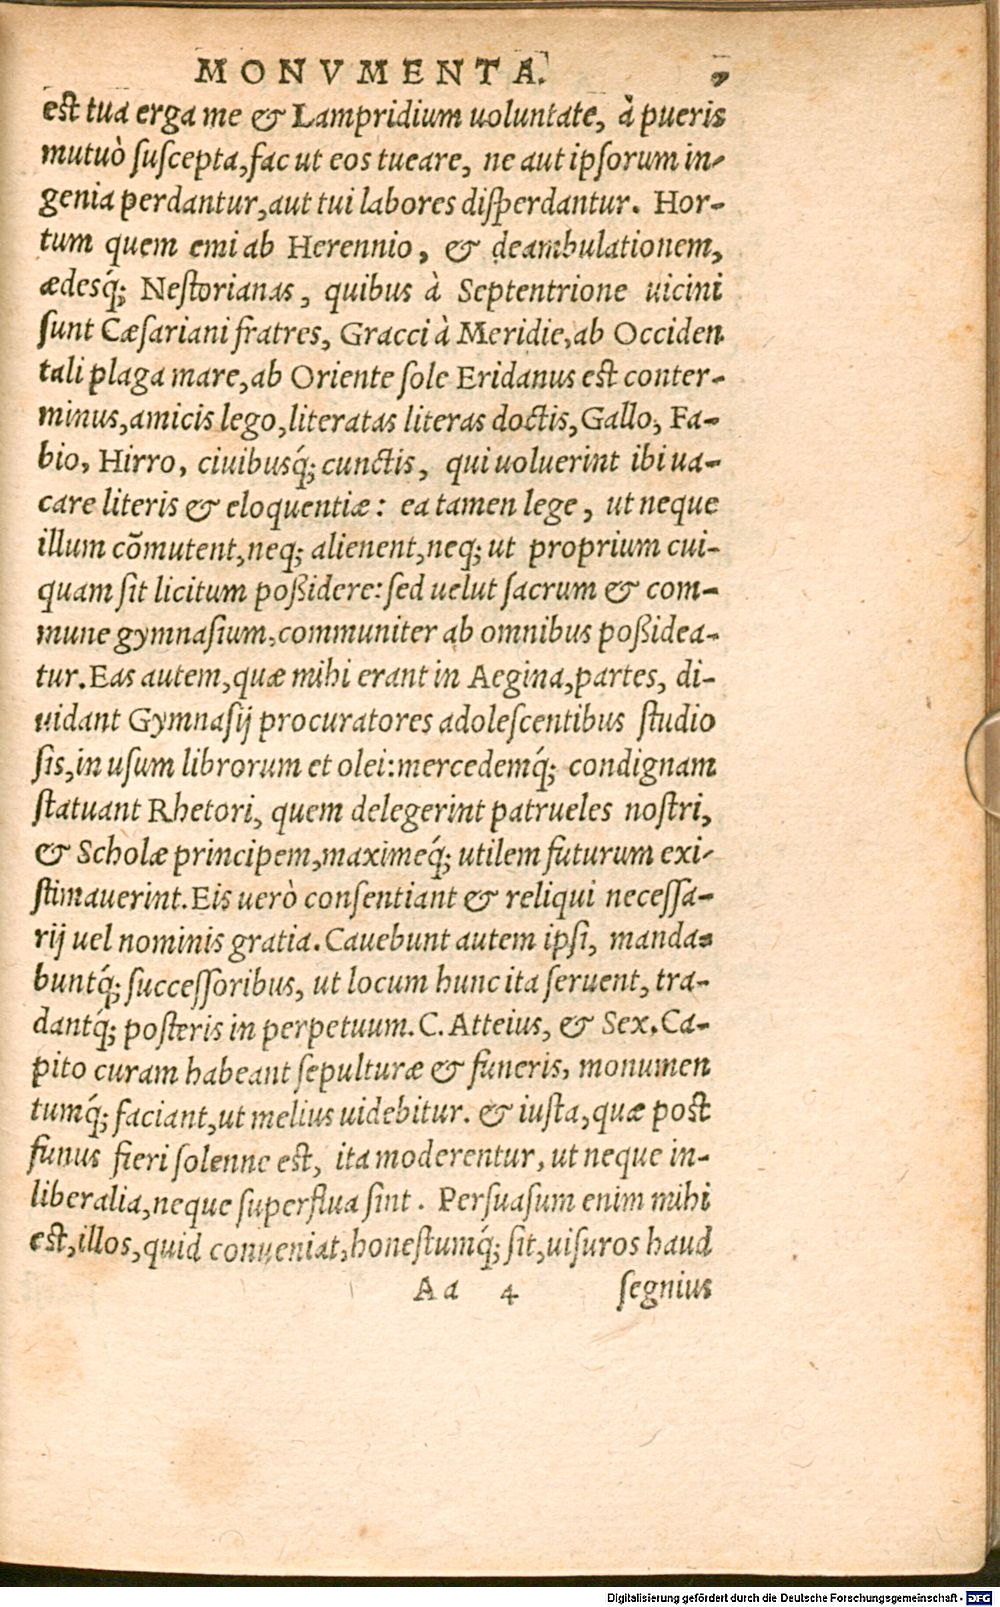 MONVMENTA. 7
est tua erga me & Lampridium uoluntate, à pueris
mutuò suscepta, fac ut eos tueare, ne aut ipsorum in-
genia perdantur, aut tui labores disperdantur. Hor-
tum quem emi ab Herennio, & deambulationem,
ædesq́; Nestorianas, quibus à Septentrione uicini
sunt Cæsariani fratres, Gracci à Meridie, ab Occiden
tali plaga mare, ab Oriente sole Eridanus est conter-
minus, amicis lego, literatas literas doctis, Gallo, Fa-
bio, Hirro, ciuibusq́; cunctis, qui uoluerint ibi ua-
care literis & eloquentiæ: ea tamen lege, ut neque
illum cõmutent, neq; alienent, neq; ut proprium cui-
quam sit licitum poßidere: sed uelut sacrum & com-
mune gymnasium, communiter ab omnibus poßidea-
tur. Eas autem, quæ mihi erant in Aegina, partes, di-
uidant Gymnasij procuratores adolescentibus studio
sis, in usum librorum et olei: mercedemq́; condignam
statuant Rhetori, quem delegerint patrueles nostri,
& Scholæ principem, maximeq́; utilem futurum exi-
stimauerint. Eis uerò consentiant & reliqui necessa-
rij uel nominis gratia. Cauebunt autem ipsi, manda-
buntq́; successoribus, ut locum hunc ita seruent, tra-
dantq́; posteris in perpetuum. C. Atteius, & Sex. Ca-
pito curam habeant sepulturæ & funeris, monumen
tumq́; faciant, ut melius uidebitur. & iusta, quæ post
funus fieri solenne est, ita moderentur, ut neque in-
liberalia, neque superflua sint. Persuasum enim mihi
est, illos, quid conueniat, honestumq́; sit, uisuros haud
Aa 4 segnius
Digitalisierung gefördert durch die Deutsche Forschungsgemeinschaft - DFG